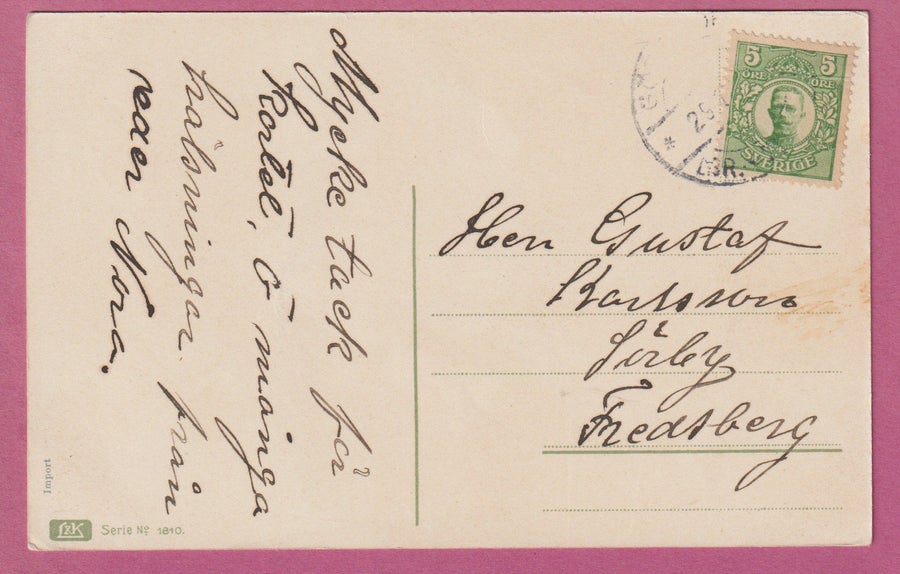 Mycke tack för
kortet, o många
hälsningar från
eder Nora.
Herr Gustaf
Karlsson
Sörby
Fredsberg
5 5
ÖRE ÖRE
SVERIGE
LBR.
Import
L&K Serie No 1810.